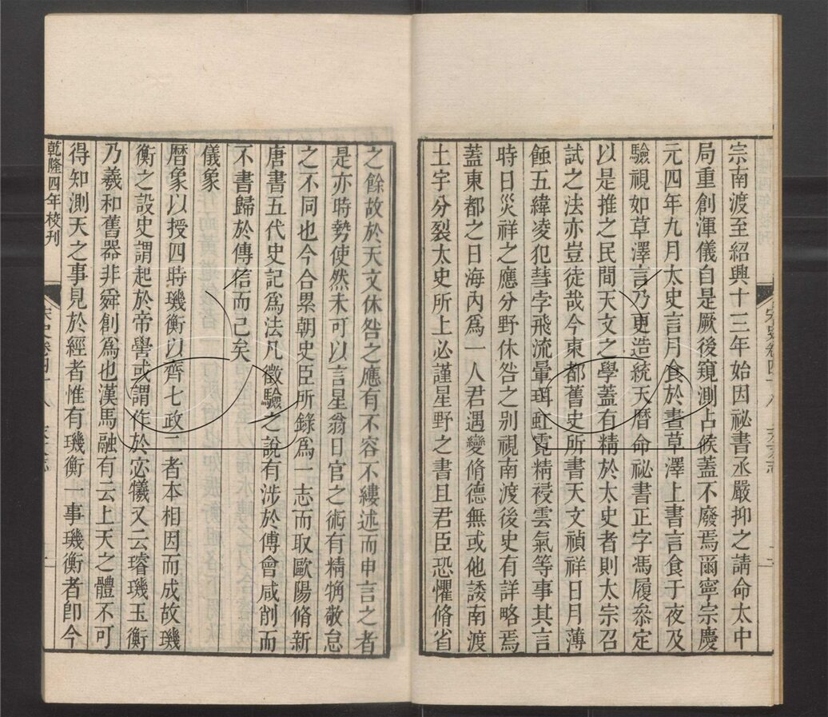 宗南渡至紹興十三年始因祕書丞嚴抑之請命太史
局重創渾儀自是厥後窺測占候蓋不廢焉爾寧宗慶
元四年九月太史言月食於晝草澤上書言食于夜及
驗視如草澤言乃更造統天曆命祕書正字馮履叅定
以是推之民間天文之學蓋有精於太史者則太宗召
試之法亦豈徒哉今東都舊史所書天文禎祥日月薄
蝕五緯凌犯彗孛飛流暈珥虹霓精祲雲氣等事其言
時日災祥之應分野休咎之别視南渡後史有詳略焉
蓋東都之日海内爲一人君遇變脩德無或他諉南渡
土宇分裂太史所上必謹星野之書且君臣恐懼脩省
之餘故於天文休咎之應有不容不縷述而申言之者
是亦時勢使然未可以言星翁日官之術有精觕敬怠
之不同也今合累朝史臣所錄爲一志而取歐陽脩新
唐書五代史記爲法凡徵驗之說有涉於傅會咸削而
不書歸於傳信而已矣
儀象
曆象以授四時璣衡以齊七政二者本相因而成故璣
衡之設史謂起於帝嚳或謂作於宓犧又云璿璣玉衡
乃羲和舊器非舜創爲也漢馬融有云上天之體不可
得知測天之事見於經者惟有璣衡一事璣衡者卽今
乾隆四年校刊